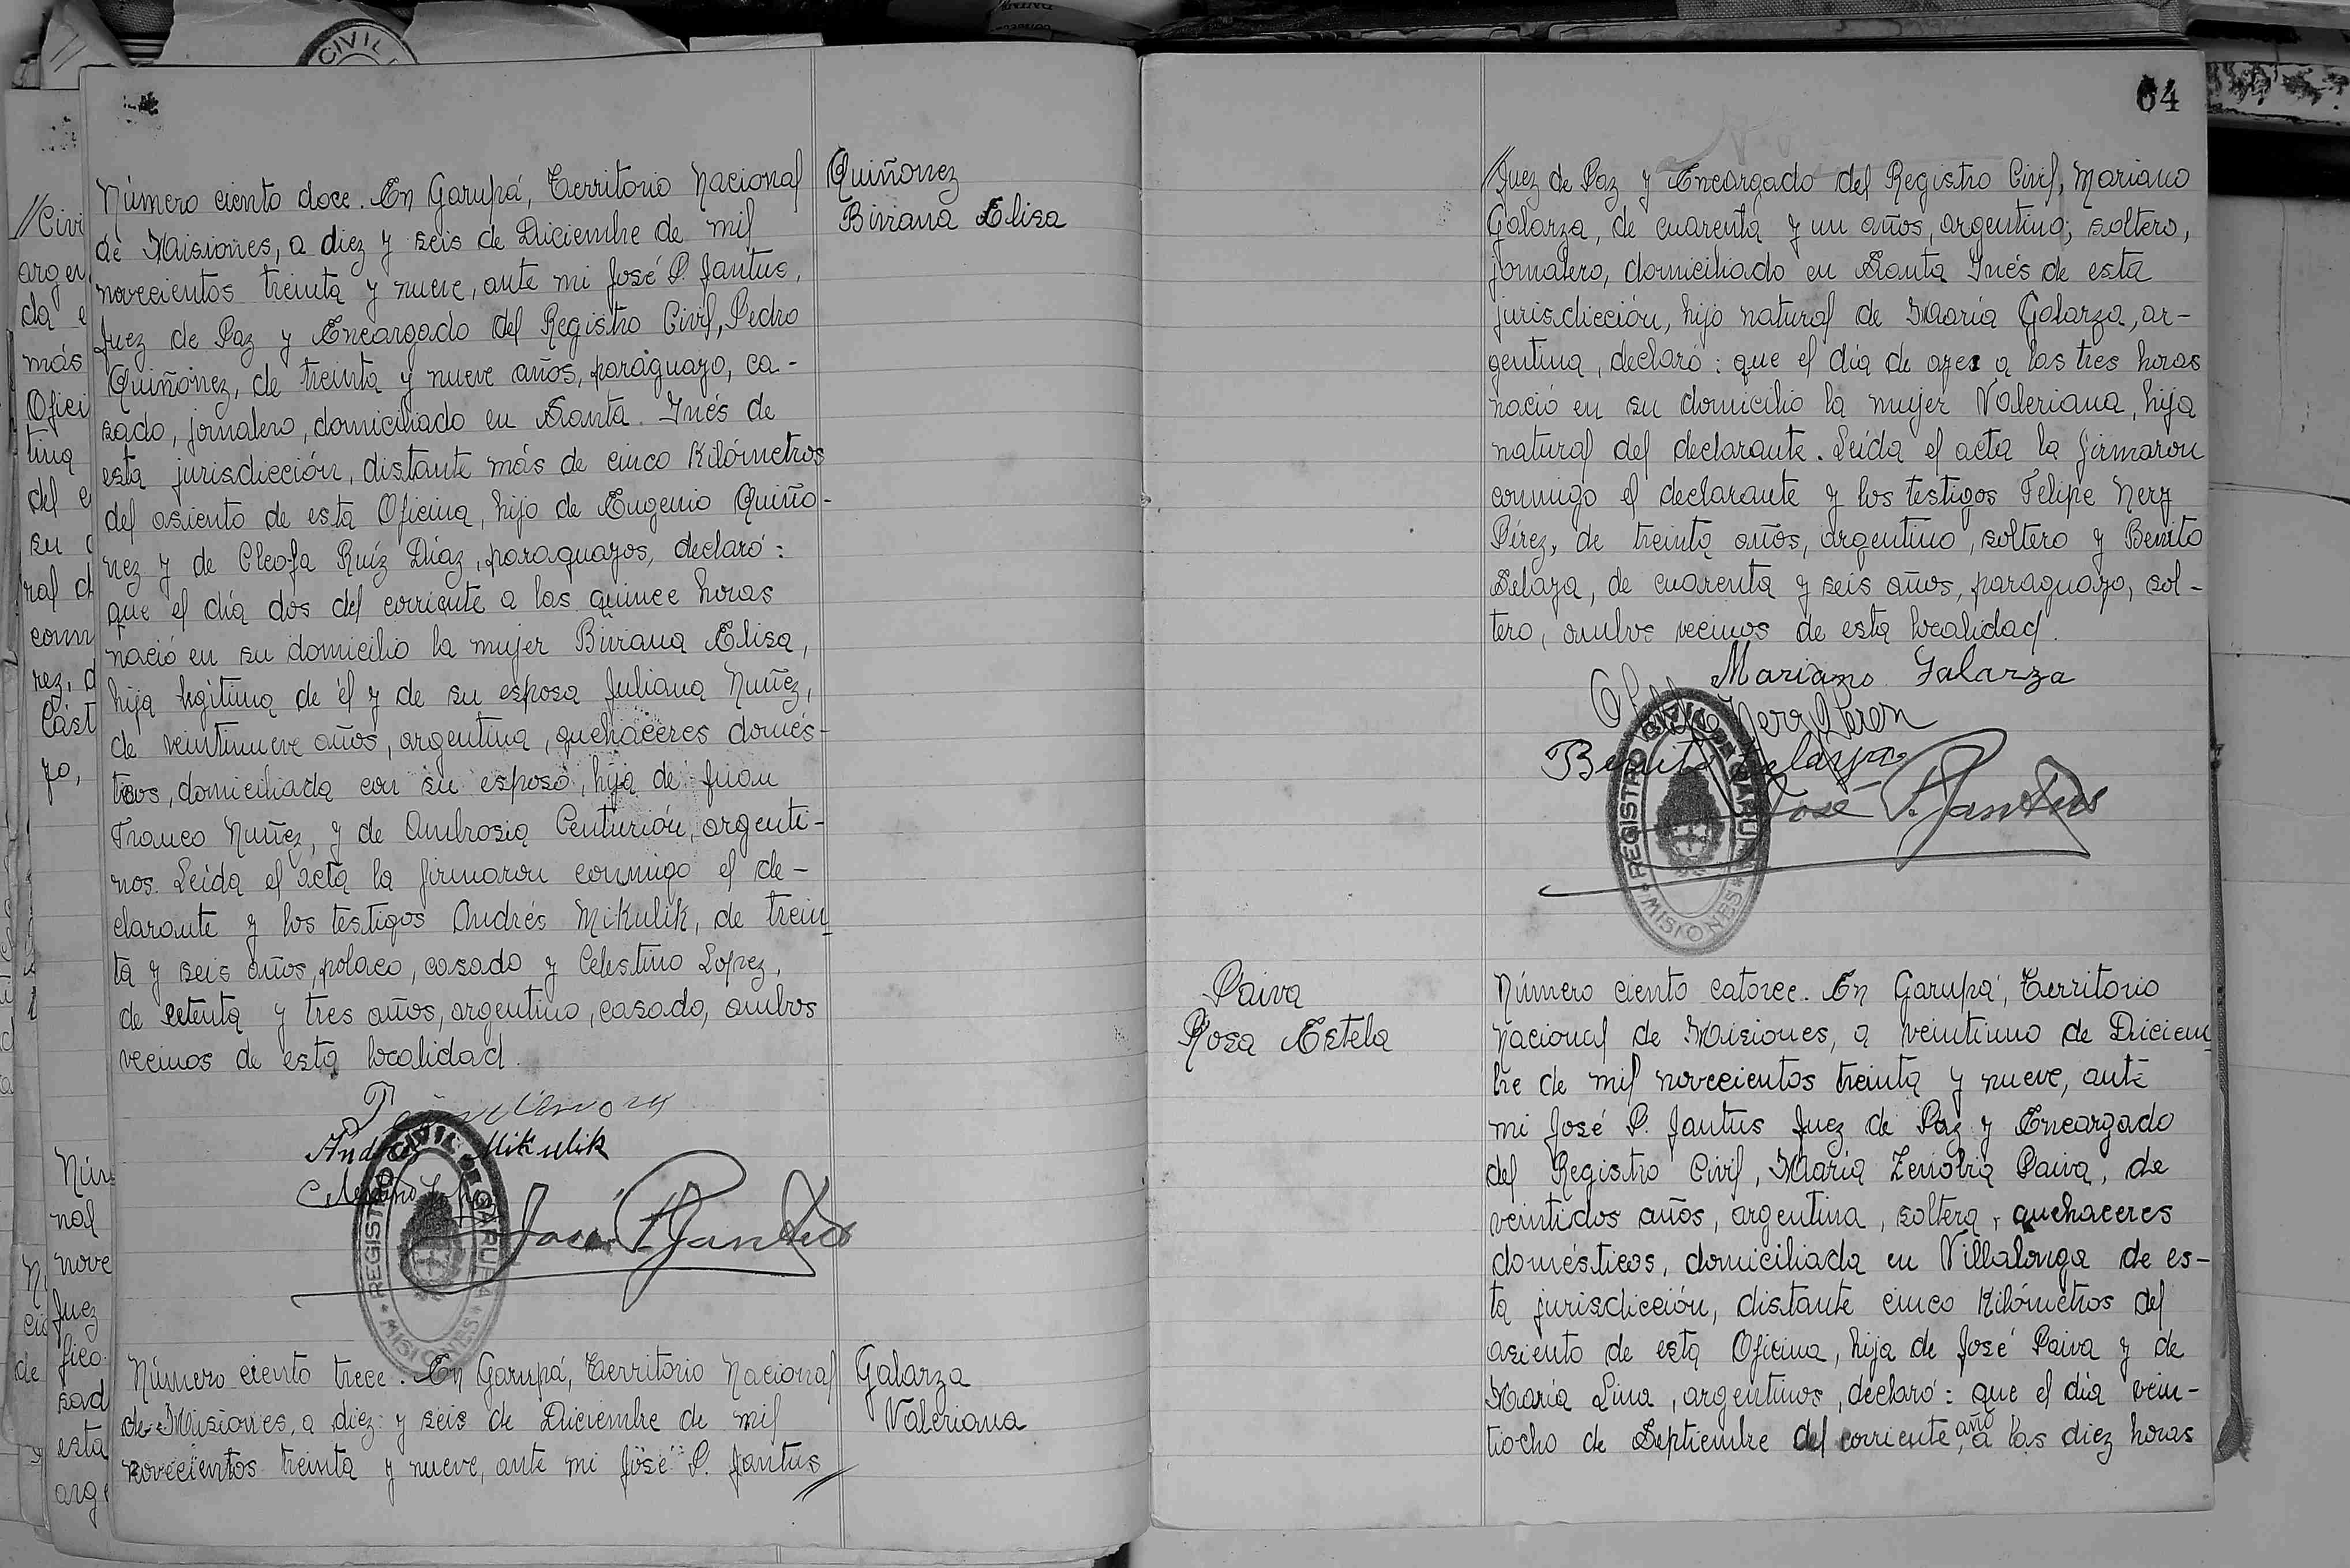 Número ciento doce. En Garupá, Territorio Nacional
de Misiones, a diez y seis de Diciembre de mil
novecientos treinta y nueve, ante mi José P. Jantus,
Juez de Paz y Encargado del Registro Civil, Pedro
Quiñonez, de treinta y nueve años, paraguayo, ca-
sado, jornalero, domiciliado en Santa Inés de
esta jurisdicción, distante más de cinco Kilómetros
del asiento de esta Oficina, hijo de Eugenio Quiño-
nez y de Cleofa Ruíz Díaz, paraguayos, declaró:
que el día dos del corriente a las quince horas
nació en su domicilio la mujer Biviana Elisa,
hija legítima de él y de su esposa Juliana Nuñez,
de veintinueve años, argentina, quehaceres domés-
ticos, domiciliada con su esposo, hija de Juan
Franco Nuñez, y de Ambrosia Centurión, argenti-
nos. Leída el acta la firmaron conmigo el de-
clarante y los testigos Andrés Mikulik, de trein
ta y seis años, polaco, casado y Celestino Lopez,
de setenta y tres años, argentino, casado, ambos
vecinos de esta localidad.
Andrés Mikulik
Celestino Lopez
José P. Jantus
REGISTRO CIVIL DE GARUPA
* MISIONES *
Quiñonez
Biviana Elisa
Número ciento trece. En Garupá, Territorio Nacional
de Misiones, a diez y seis de Diciembre de mil
novecientos treinta y nueve, ante mi José P. Jantus //
Galarza
Valeriana
64
//Juez de Paz y Encargado del Registro Civil, Mariano
Galarza, de cuarenta y un años, argentino, soltero,
jornalero, domiciliado en Santa Inés de esta
jurisdicción, hijo natural de María Galarza, ar-
gentina, declaró: que el día de ayer a las tres horas
nació en su domicilio la mujer Valeriana, hija
natural del declarante. Leída el acta la firmaron
conmigo el declarante y los testigos Felipe Nery
Pérez, de treinta años, argentino, soltero y Benito
Selaya, de cuarenta y seis años, paraguayo, sol-
tero, ambos vecinos de esta localidad.
Mariano Galarza
Benito Selaya
José P. Jantus
REGISTRO CIVIL DE GARUPA
* MISIONES *
Paiva
Rosa Estela
Número ciento catorce. En Garupá, Territorio
Nacional de Misiones, a veintiuno de Diciem
bre de mil novecientos treinta y nueve, ante
mi José P. Jantus Juez de Paz y Encargado
del Registro Civil, María Zenobia Paiva, de
veintidos años, argentina, soltera, quehaceres
domésticos, domiciliada en Villalonga de es-
ta jurisdicción, distante cinco Kilómetros del
asiento de esta Oficina, hija de José Paiva y de
María Lina, argentinos, declaró: que el día vein-
tiocho de Septiembre del corriente, año a las diez horas